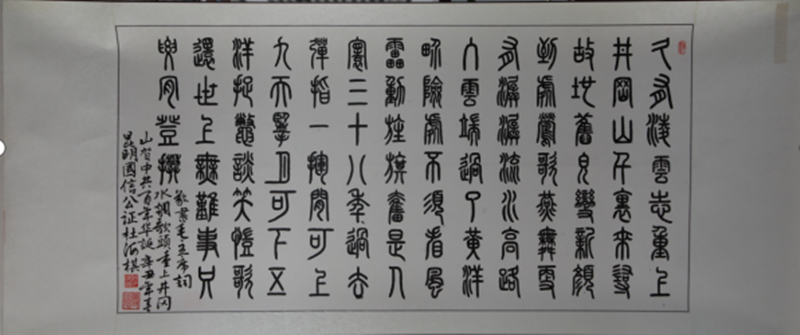 久有凌雲志重上
井岡山千里來尋
故地舊皃變新顏
到處鶯歌燕舞更
有潺潺流水高路
入雲端過了黃洋
界險處不須看風
雷動旌旗奮是人
寰三十八年過去
彈指一揮間可上
九天擥月可下五
洋捉鱉談笑愷歌
還世上無難事只
要肯登攀
敬書毛主席詞
水調歌頭重上井冈
山賀中共百年华誕辛丑年春
昆明國信公证杜海棋